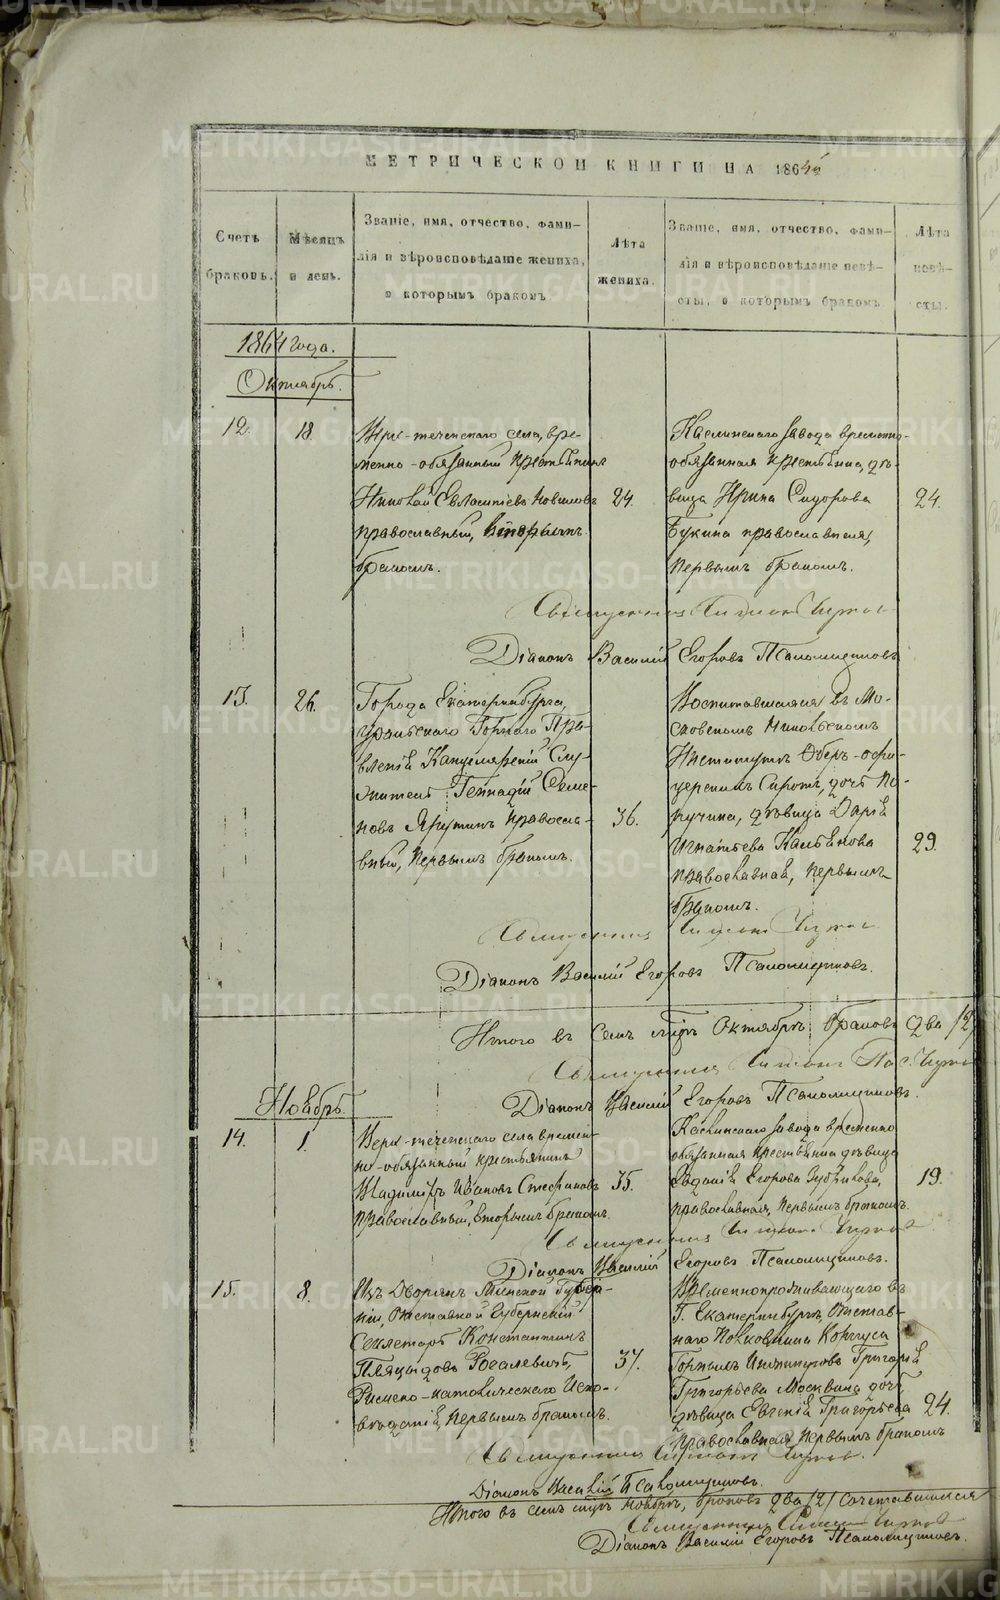 МЕТРИЧЕСКОЙ КНИГИ НА 1864
Счетъ браковъ.
Мѣсяцъ и день.
Званіе, имя, отчество, фами-
лія и вѣроисповѣданіе жениха,
и которымъ бракомъ
Лѣта жениха.
Званіе, имя, отчество, фами-
лія и вѣроисповѣданіе невѣ-
сты, и которымъ бракомъ
Лѣта невѣ-
сты.
1864 года.
Октябрь.
12. 18.
Верх-теченскаго села, вре-
менно-обязанный крестьянинъ
Николай Новиковъ
православный, вторымъ
бракомъ.
24.
Каслинскаго завода временно-
обязанная крестьянка, дѣ-
вица Ирина Сидорова
Букина православная,
первымъ бракомъ.
24.
Священникъ
Діаконъ Василій Егоровъ Псаломщиковъ
13. 26.
Города Екатеринбурга,
Уральскаго Горнаго Пра-
вленія Канцелярскій Слу-
житель Геннадій Семе-
новъ Ярутинъ правосла-
вный, первымъ бракомъ.
36.
Воспитавшаяся въ Мо-
сковскомъ Николаевскомъ
Институтѣ Оберъ-офи-
церскихъ Сиротъ, дочь По-
ручика, дѣвица Дарія
Игнатьева Касьянова
православная, первымъ
бракомъ.
29.
Священникъ
Діаконъ Василій Егоровъ Псаломщиковъ.
Итого въ семъ м-цѣ Октябрѣ браковъ два /2/
Священникъ
Діаконъ Василій Егоровъ Псаломщиковъ.
Ноябрь
14. 1.
Верх-теченскаго села времен-
но-обязанный крестьянинъ
Владиміръ Ивановъ Стефановъ
православный, вторымъ бракомъ.
35.
Каслинскаго завода временно
обязанная крестьянка дѣвица
Евдокія Егорова Зубрикова,
православная, первымъ бракомъ.
19.
Священникъ
Діаконъ Василій Егоровъ Псаломщиковъ.
15. 8.
Изъ Дворянъ Минской Губер-
ніи, Отставной Губернскій
Секретарь Константинъ
Рогалевичъ,
Римско-католическаго Испо-
вѣданія, первымъ бракомъ.
37.
Временнопроживающаго въ
Г. Екатеринбургѣ, Отстав-
наго Полковника Корпуса
Горныхъ Инженеровъ Григорія
Григорьева Москвина дочь,
дѣвица Евгенія Григорьева
православная, первымъ бракомъ
24.
Священникъ
Діаконъ Василій Псаломщиковъ.
Итого въ семъ м-цѣ Ноябрѣ, браковъ два /2/ сочетавшихся
Священникъ
Діаконъ Василій Егоровъ Псаломщиковъ.
METRIKI.GASO-URAL.RU